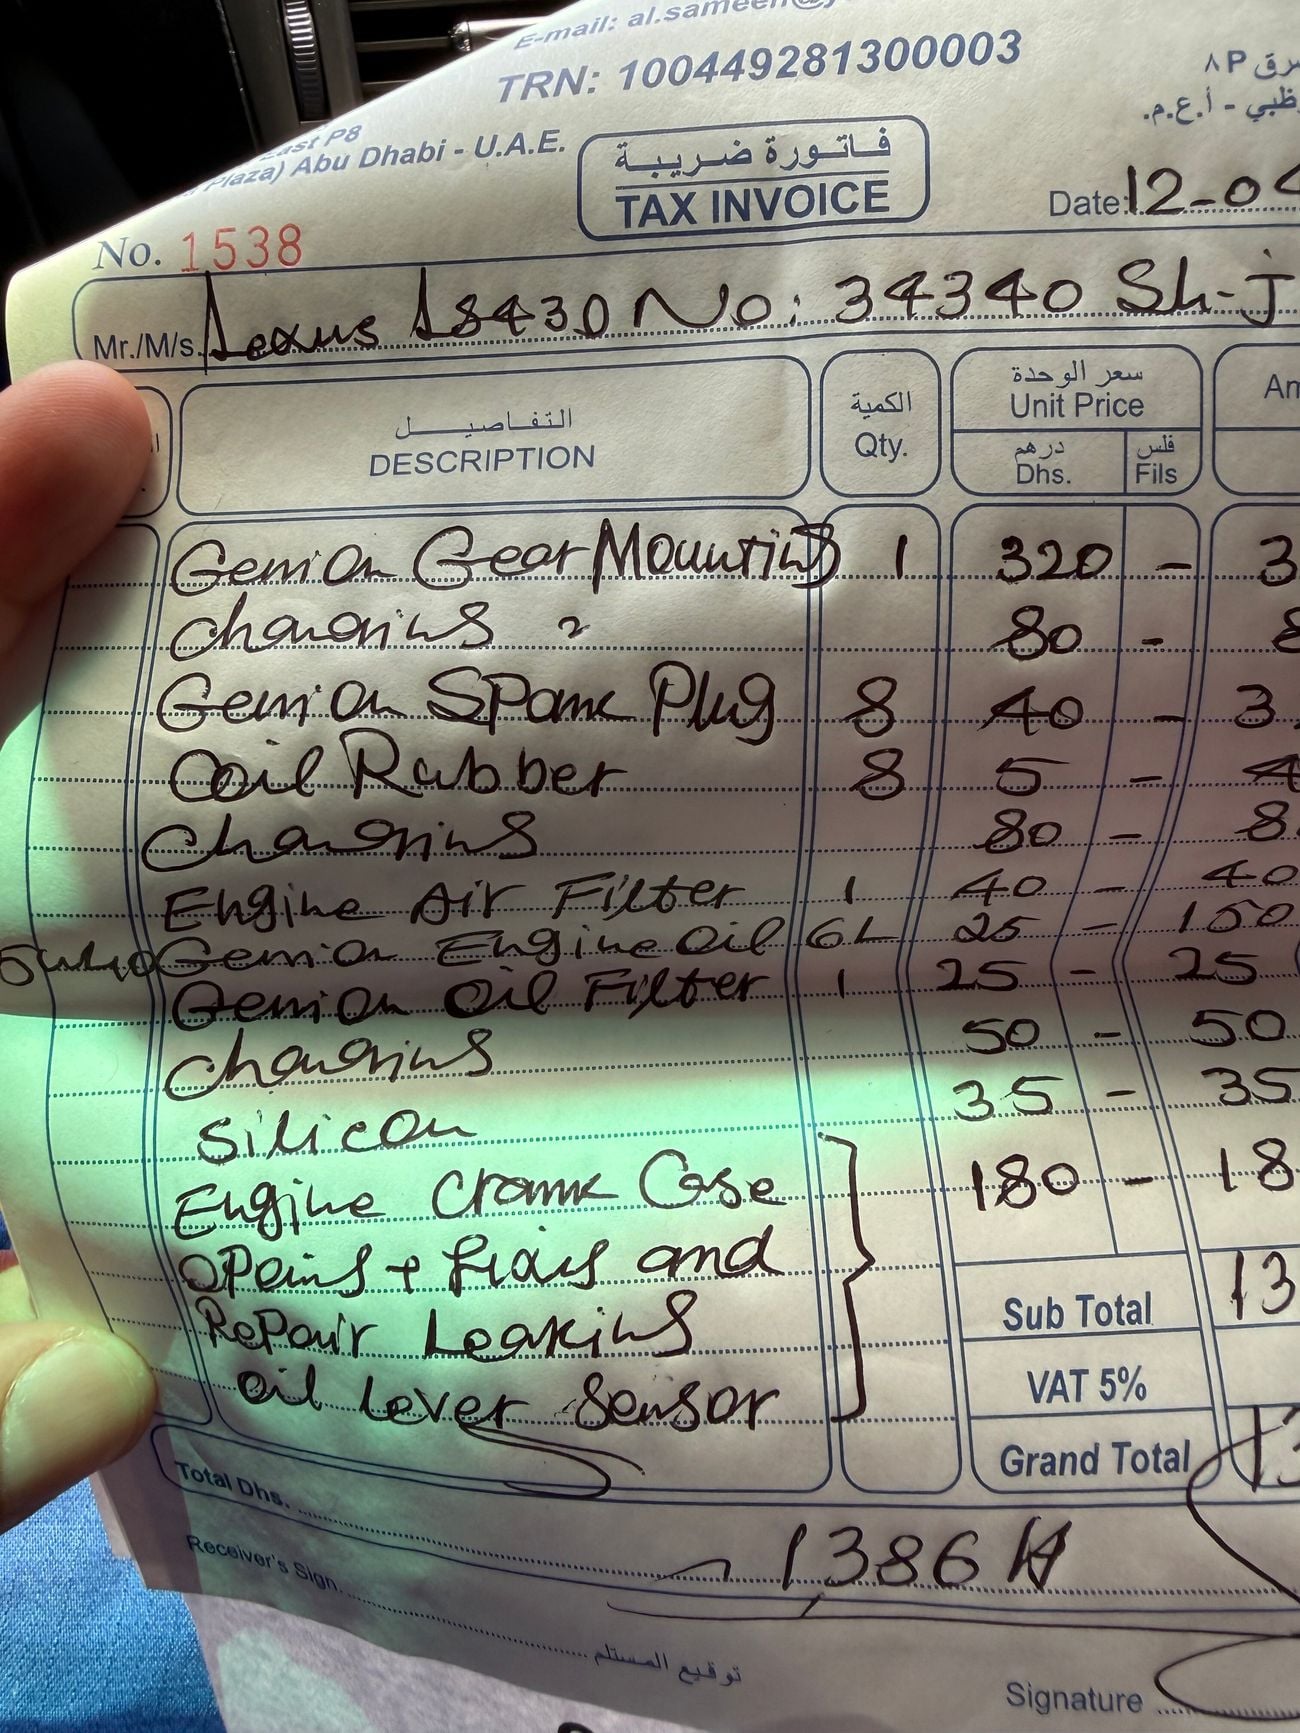 E-mail: al.sameen@y
TRN: 100449281300003
East P8
Plaza) Abu Dhabi - U.A.E.
رق P ٨
ظبي - أ.ع.م.
فاتورة ضريبة
TAX INVOICE
Date: 12-04
No. 1538
Mr./M/s. Lexus LS430 No: 34340 Sh-J
التفاصيل
DESCRIPTION
الكمية
Qty.
سعر الوحدة
Unit Price
درهم
Dhs.
فلس
Fils
Am
Genion Gear Mounting 1 320 - 3
changing 2 80 - 8
Genion Spank Plug 8 40 - 3
Coil Rubber 8 5 - 4
changing 80 - 8
Engine Air Filter 1 40 - 40
Genion Engine Oil 6L 25 - 150
Genion Oil Filter 1 25 - 25
changing 50 - 50
Silicon 35 - 35
Engine Crank Case 180 - 18
opeing + fixing and
Repair Leaking
oil lever sensor
Sub Total 13
VAT 5%
Grand Total 13
Total Dhs. 1386
Receiver's Sign. توقيع المستلم
Signature